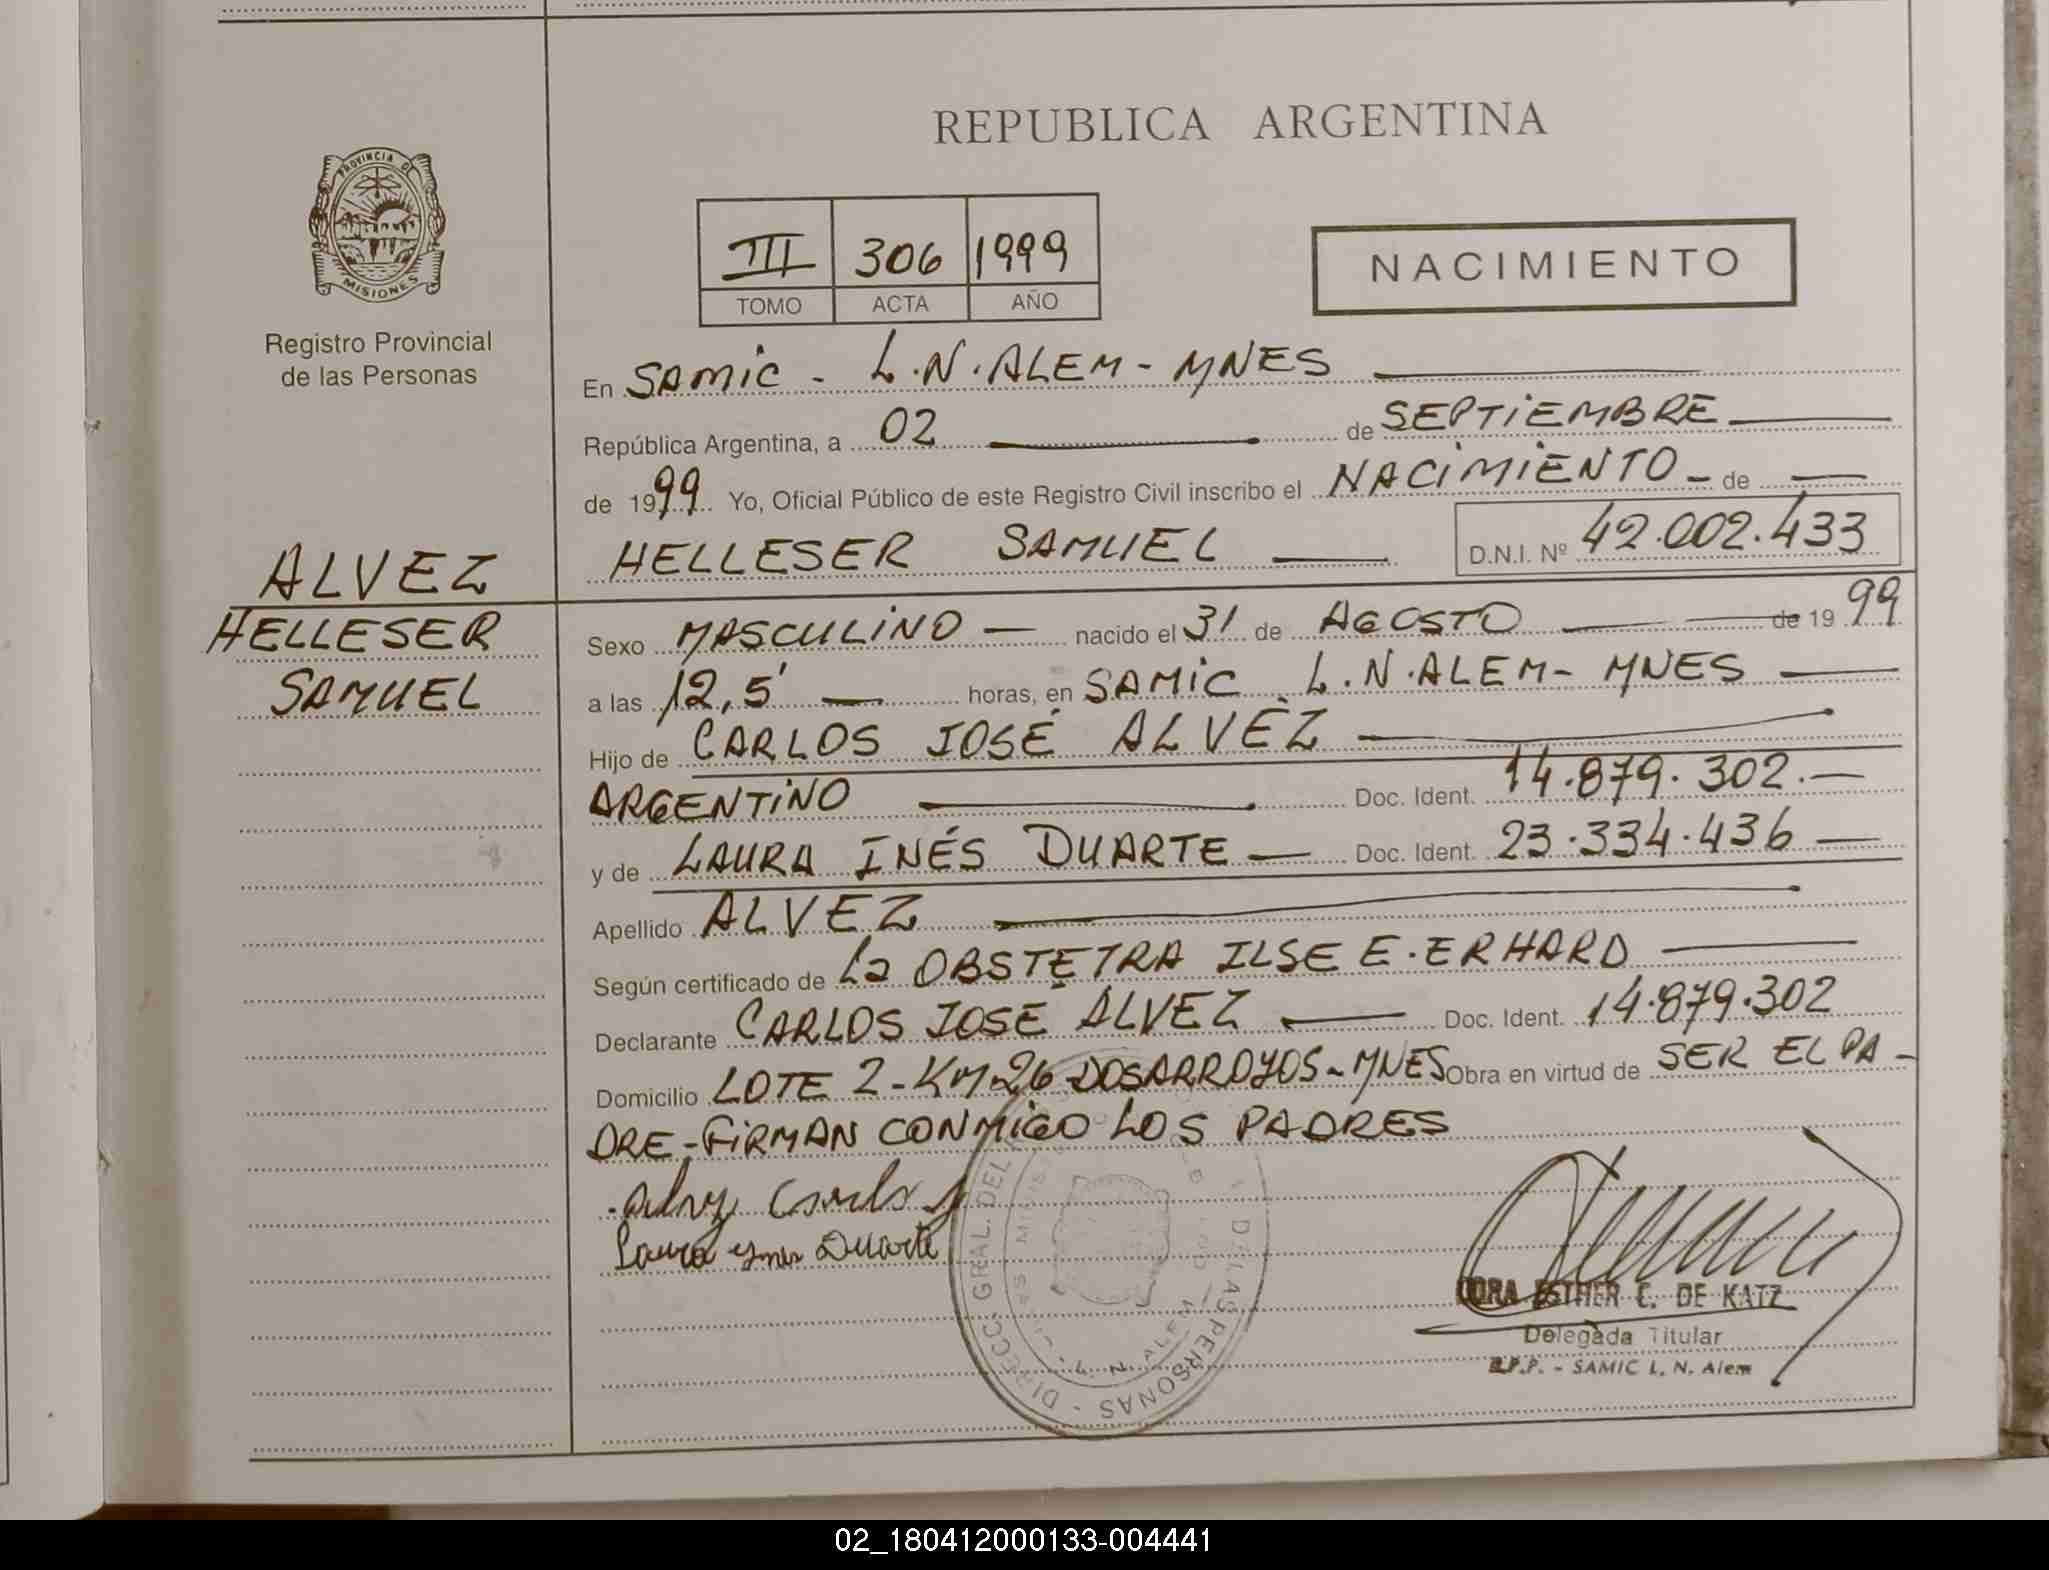 REPUBLICA ARGENTINA
PROVINCIA DE
MISIONES
Registro Provincial
de las Personas
III 306 1999
TOMO ACTA AÑO
NACIMIENTO
En SAMIC - L.N.ALEM - MNES
República Argentina, a 02 de SEPTIEMBRE
de 1999 Yo, Oficial Público de este Registro Civil inscribo el NACIMIENTO - de
HELLESER SAMUEL D.N.I. Nº 42.002.433
ALVEZ
HELLESER
SAMUEL
Sexo MASCULINO nacido el 31 de AGOSTO de 1999
a las 12,5' horas, en SAMIC L.N.ALEM - MNES
Hijo de CARLOS JOSÉ ALVEZ
ARGENTINO Doc. Ident. 14.879.302.
y de LAURA INÉS DUARTE Doc. Ident. 23.334.436
Apellido ALVEZ
Según certificado de La OBSTETRA ILSE E. ERHARD
Declarante CARLOS JOSÉ ALVEZ Doc. Ident. 14.879.302
Domicilio LOTE 2 - KM 26 DOS ARROYOS - MNES Obra en virtud de SER EL PA-
DRE - FIRMAN CONMIGO LOS PADRES
Alvez Carlos J
Laura Ynes Duarte
DIRECC. GRAL. DEL DE LAS PERSONAS
L. N. ALEM
DORA ESTHER C. DE KATZ
Delegada Titular
R.P.P. - SAMIC L. N. Alem
02_180412000133-004441